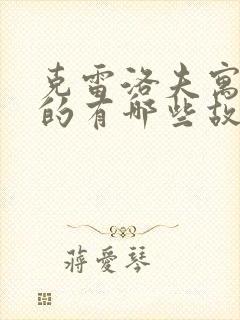 克雷洛夫寓
的有哪些故
蒋爱琴